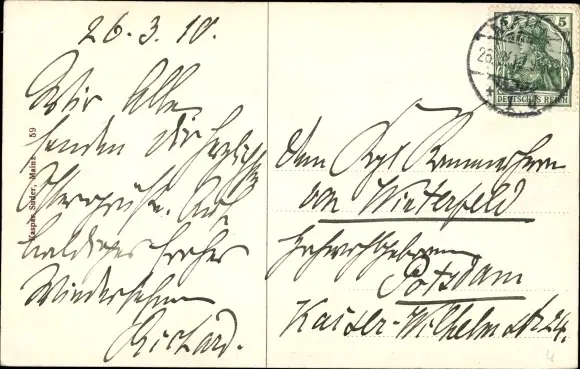 26. 3. 10.
Wir Alle
senden Dir herzlichste
Ostergrüße. Auf
baldiges frohes
Wiedersehen
Richard.
Kaspar Suder, Mainz 59
5
DEUTSCHES REICH
dem Kgl Kammerherrn
von Winterfeld
Hochwohlgeboren
Potsdam
Kaiser-Wilhelm str 24.